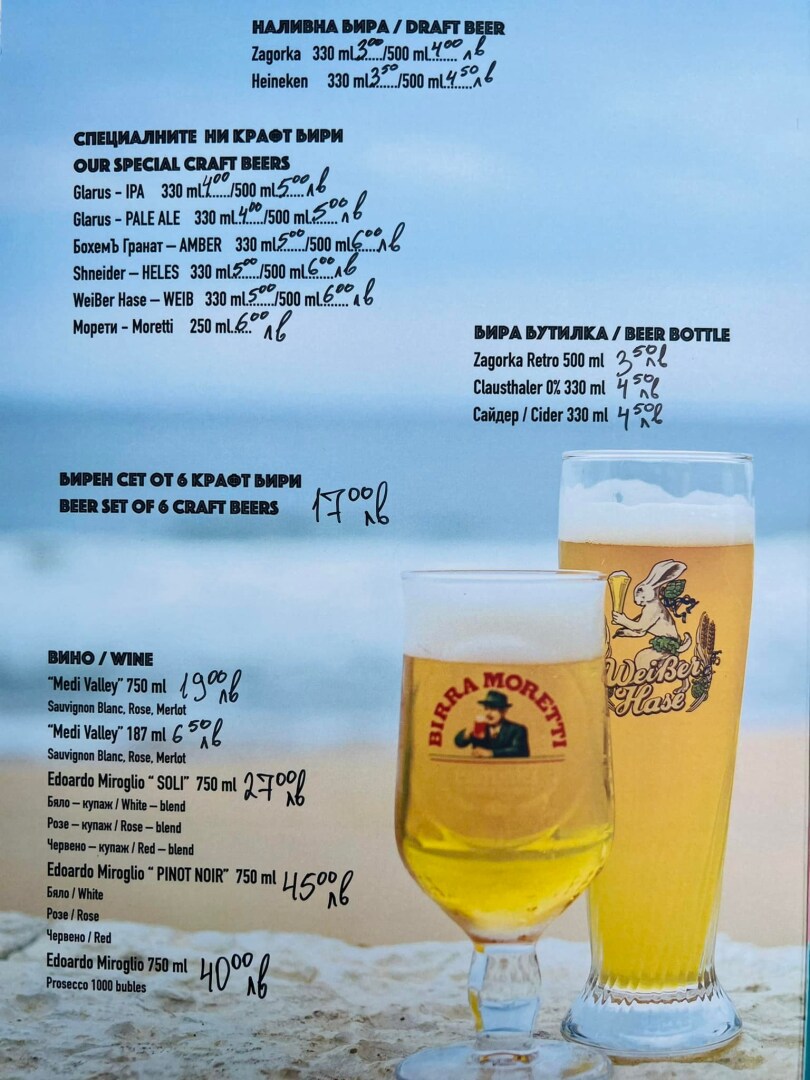 НАЛИВНА БИРА / DRAFT BEER
Zagorka 330 ml.3.00...../500 ml.4.00...... лв
Heineken 330 ml.3.50...../500 ml.4.50..... лв
СПЕЦИАЛНИТЕ НИ КРАФТ БИРИ
OUR SPECIAL CRAFT BEERS
Glarus – IPA 330 ml.4.00...../500 ml.5.00..... лв
Glarus – PALE ALE 330 ml.4.00...../500 ml.5.00..... лв
БохемЪ Гранат – AMBER 330 ml.5.00...../500 ml.6.00..... лв
Shneider – HELES 330 ml.5.00...../500 ml.6.00..... лв
WeiBer Hase – WEIB 330 ml.5.00...../500 ml.6.00..... лв
Морети - Moretti 250 ml.6.00.. лв
БИРА БУТИЛКА / BEER BOTTLE
Zagorka Retro 500 ml 3.50 лв
Clausthaler 0% 330 ml 4.50 лв
Сайдер / Cider 330 ml 4.50 лв
БИРЕН СЕТ ОТ 6 КРАФТ БИРИ
BEER SET OF 6 CRAFT BEERS 17.00 лв
ВИНО / WINE
“Medi Valley” 750 ml 19.00 лв
Sauvignon Blanc, Rose, Merlot
“Medi Valley” 187 ml 6.50 лв
Sauvignon Blanc, Rose, Merlot
Edoardo Miroglio “ SOLI” 750 ml 27.00 лв
Бяло – купаж / White – blend
Розе – купаж / Rose – blend
Червено – купаж / Red – blend
Edoardo Miroglio “ PINOT NOIR” 750 ml 45.00 лв
Бяло / White
Розе / Rose
Червено / Red
Edoardo Miroglio 750 ml 40.00 лв
Prosecco 1000 bubles
BIRRA MORETTI
Weißer
Hase